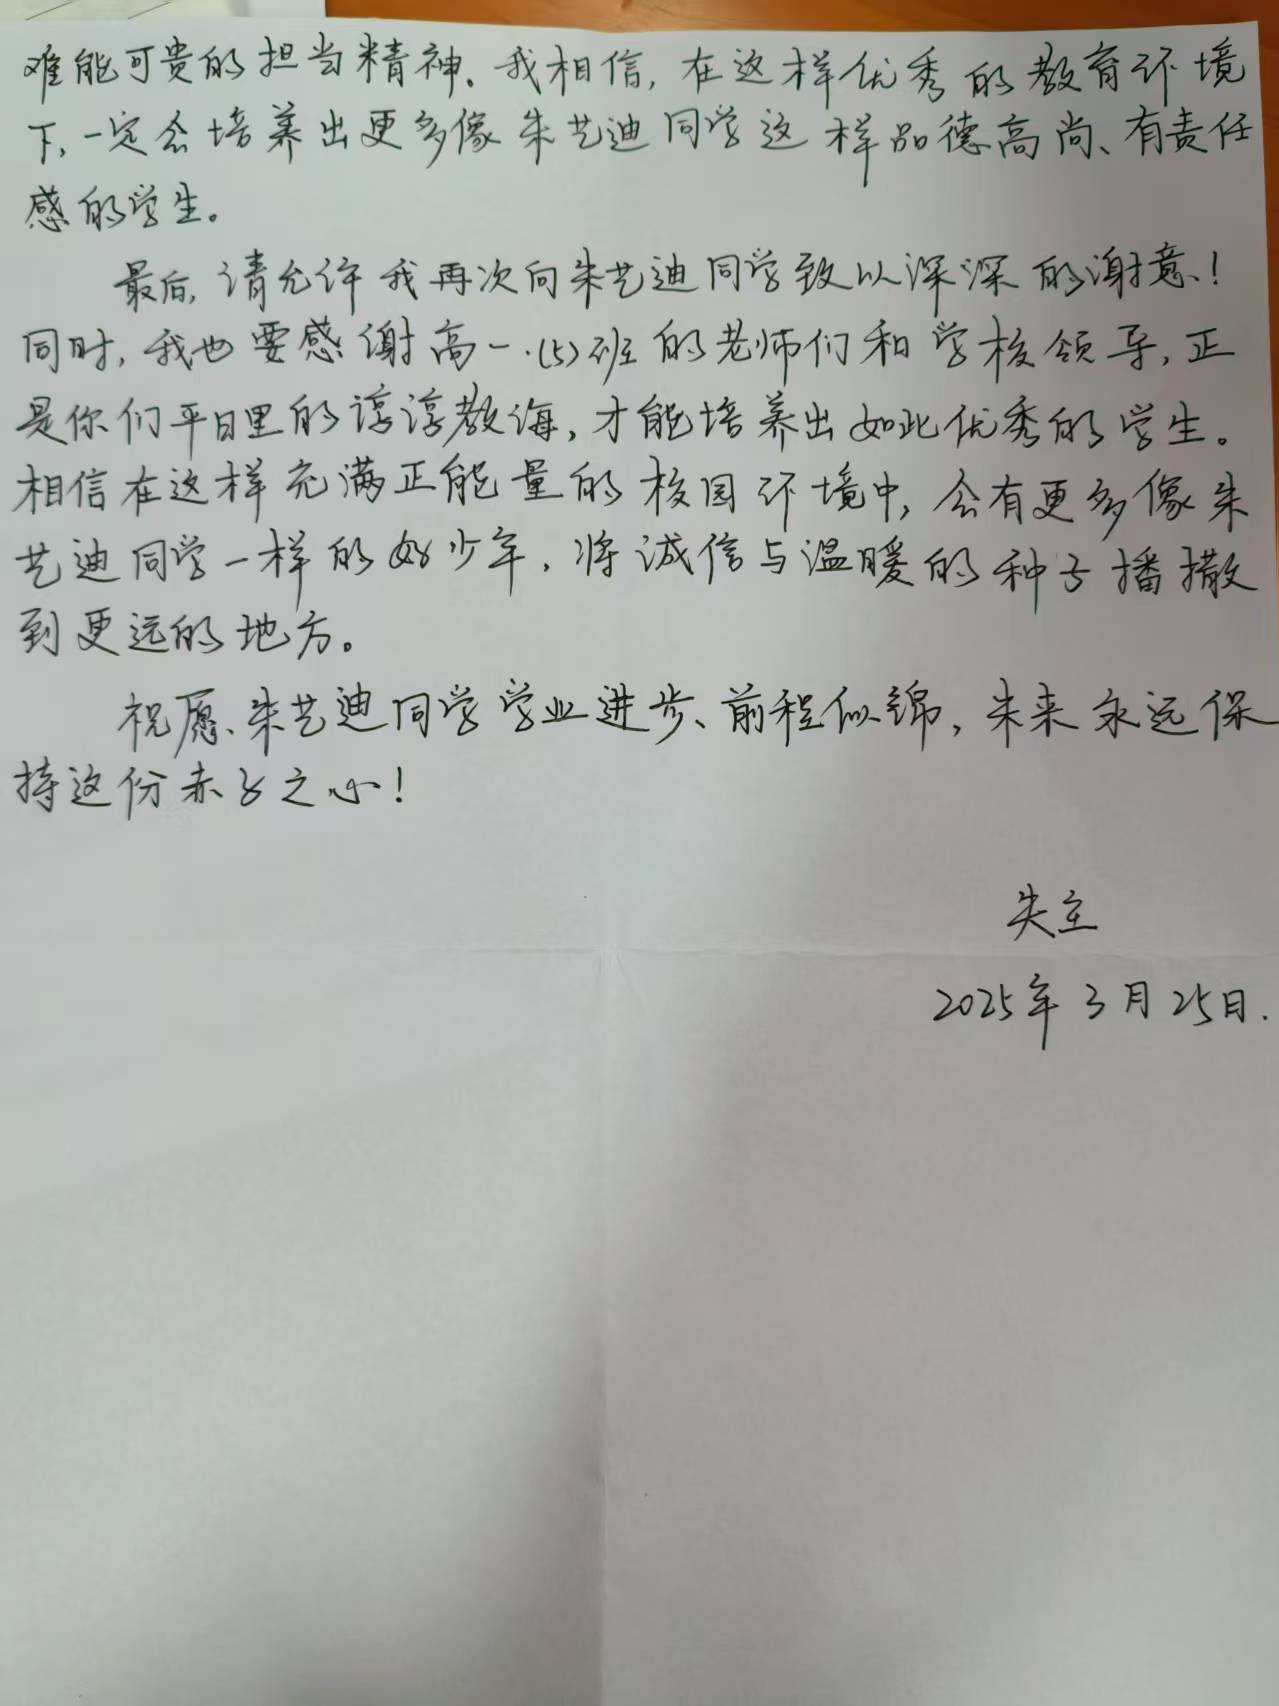 难能可贵的担当精神。我相信,在这样优秀的教育环境
下,一定会培养出更多像朱艺迪同学这样品德高尚、有责任
感的学生。
最后,请允许我再次向朱艺迪同学致以深深的谢意!
同时,我也要感谢高一.(5)班的老师们和学校领导,正
是你们平日里的谆谆教诲,才能培养出如此优秀的学生。
相信在这样充满正能量的校园环境中,会有更多像朱
艺迪同学一样的好少年,将诚信与温暖的种子播撒
到更远的地方。
祝愿朱艺迪同学学业进步、前程似锦,未来永远保
持这份赤子之心!
失主
2025年3月25日.